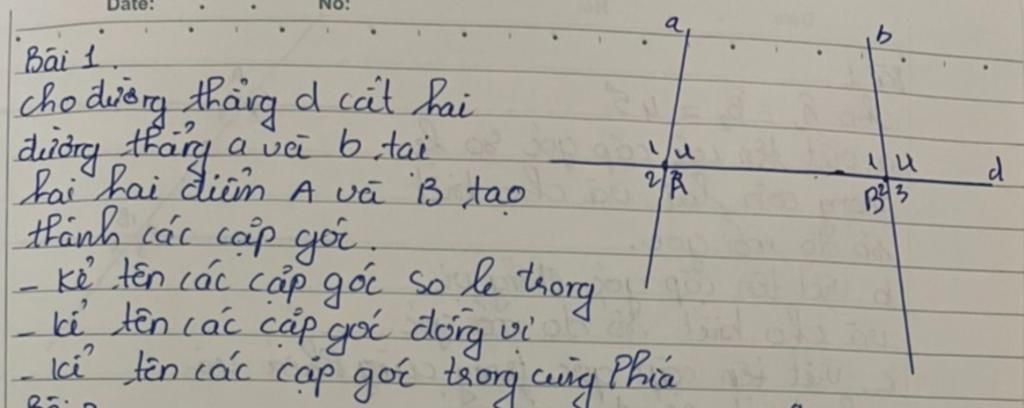 Date: No:
Bài 1.
cho đường thẳng d cắt hai
đường thẳng a và b tại
hai hai điểm A và B tạo
thành các cặp góc.
- kể tên các cặp góc so le trong
- kể tên các cặp góc đồng vị
- kể tên các cặp góc trong cùng phía
a b
1 4 1 4 d
2 A B 2 3